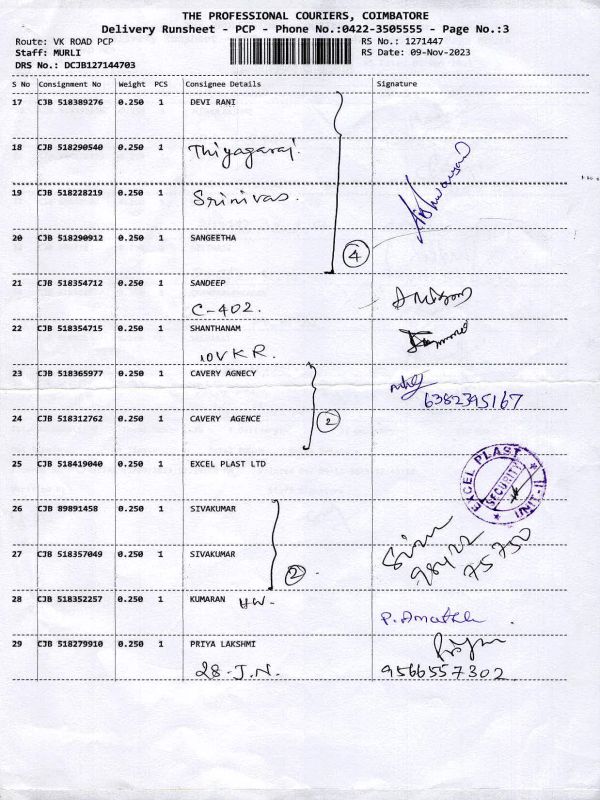 THE PROFESSIONAL COURIERS, COIMBATORE
Delivery Runsheet - PCP - Phone No.:0422-3505555 - Page No.:3
Route: VK ROAD PCP RS No.: 1271447
Staff: MURLI RS Date: 09-Nov-2023
DRS No.: DCJB127144703
S No Consignment No Weight PCS Consignee Details Signature
17 CJB 518389276 0.250 1 DEVI RANI
18 CJB 518290540 0.250 1 Thiyagaraj.
19 CJB 518228219 0.250 1 Srinivas.
20 CJB 518290912 0.250 1 SANGEETHA
4
21 CJB 518354712 0.250 1 SANDEEP
C-402.
22 CJB 518354715 0.250 1 SHANTHANAM
VKR.
23 CJB 518365977 0.250 1 CAVERY AGNECY
6382395167
24 CJB 518312762 0.250 1 CAVERY AGENCE
2
25 CJB 518419040 0.250 1 EXCEL PLAST LTD
EXCEL PLAST
SECURITY
UNIT-II
26 CJB 89891458 0.250 1 SIVAKUMAR
27 CJB 518357049 0.250 1 SIVAKUMAR
2
98422
75750
28 CJB 518352257 0.250 1 KUMARAN HW.
29 CJB 518279910 0.250 1 PRIYA LAKSHMI
28-J.N. 9566557302